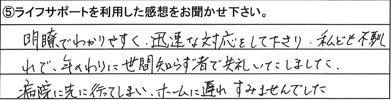 ⑤ライフサポートを利用した感想をお聞かせ下さい。
明瞭でわかりやすく、迅速な対応をして下さり、私ども不馴
れで、年のわりに世間知らず者で失礼いたしました。
病院に先に行ってしまい、ホームに遅れすみませんでした